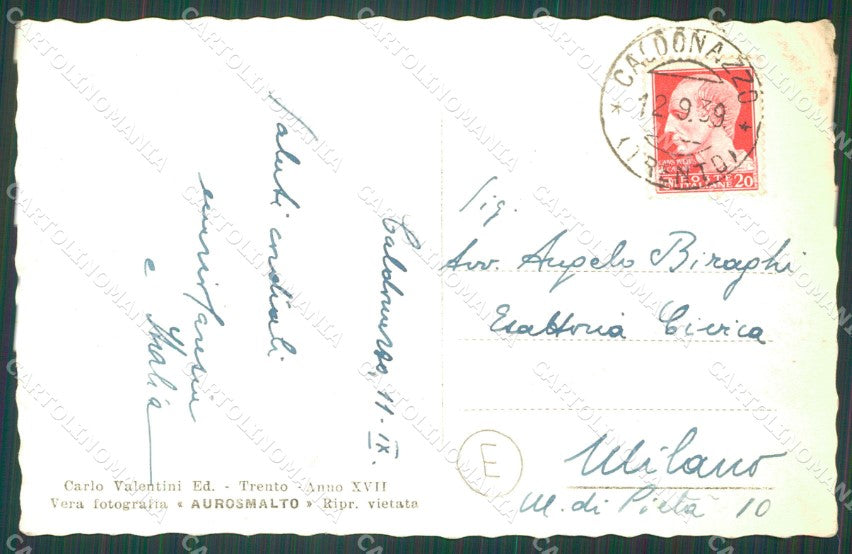 Caldonazzo, 11-IX.
Saluti cordiali
e Italia
Carlo Valentini Ed. - Trento - Anno XVII
Vera fotografia « AUROSMALTO » Ripr. vietata
* CALDONAZZO *
12.9.39
(TRENTO)
POSTE ITALIANE 20
Sig.
Avv. Angelo Biraghi
Esattoria Civica
E
Milano
M. di Pietà 10
CARTOLINOMANIA